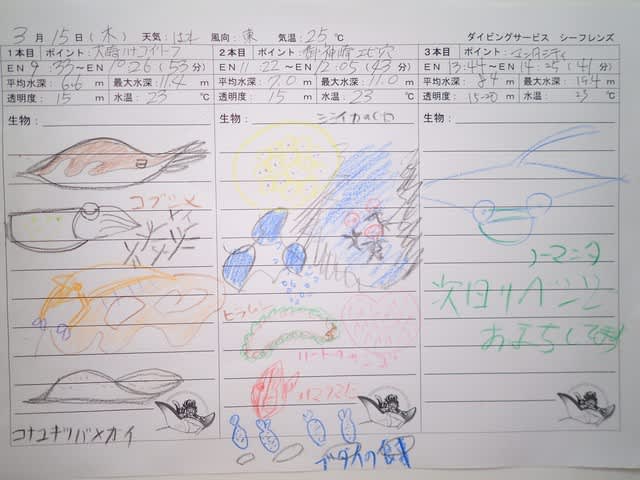 3月 15日 (木) 天気: はれ 風向: 東 気温: 25℃ ダイビングサービス シーフレンズ
1本目 ポイント: 大崎ハナゴイリーフ
EN 9:33〜EN 10:26 (53分)
平均水深: 6.6 m 最大水深: 11.4 m
透明度: 15 m 水温: 23 ℃
生物:
コブシメ
コナユキツバメガイ
2本目 ポイント: 御神崎エビ穴
EN 11:22〜EN 12:05 (43分)
平均水深: 7.0 m 最大水深: 11.0 m
透明度: 15 m 水温: 23 ℃
生物:
ブダイの
3本目 ポイント: マンタシティ
EN 13:44〜EN 14:25 (41分)
平均水深: 8.4 m 最大水深: m
透明度: 15-20 m 水温: 23 ℃
生物:
ノーマンタ
次回リベンジ